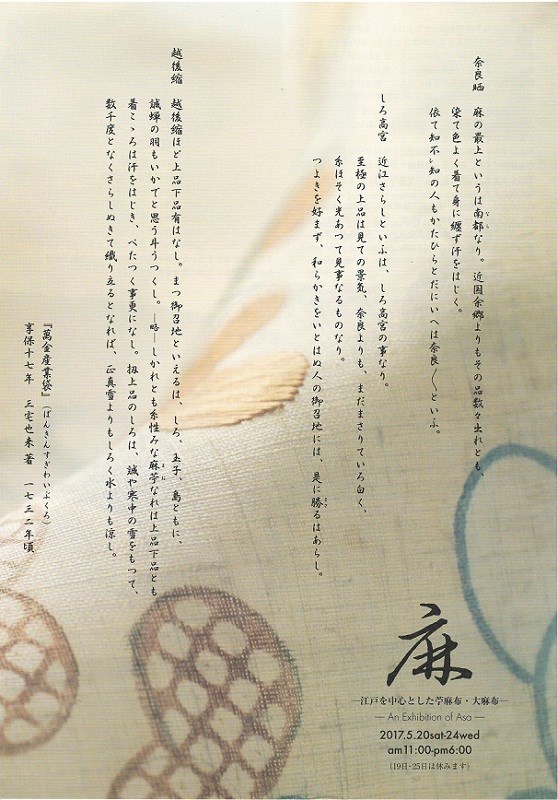 奈良晒　麻の最上というは南都なり。近国余郷よりもその品数々出れとも、
染て色よく着て身に纏ず汗をはじく。
依て知不レ知の人もかたひらとだにいへは奈良〱といふ。
しろ高宮　近江さらしといふは、しろ高宮の事なり。
至極の上品は見ての景気、奈良よりも、まだまさりていろ白く、
糸ほそく光あつて見事なるものなり。
つよきを好まず、和らかきをいとはぬ人の御召地には、是に勝るはあらし。
越後縮　越後縮ほど上品下品有はなし。まつ御召地といえるは、しろ、玉子、島ともに、
誠蝉の羽もいかでと思う斗うつくし。―略―しかれとも糸性みな麻苧なれは上品下品とも
着こゝろは汗をはじき、べたつく事更になし。扨上品のしろは、誠や寒中の雪をもつて、
数千度となくさらしぬきて織り立るとなれば、正真雪よりもしろく水よりも涼し。
『萬金産業袋』（ばんきんすぎわいぶくろ）
享保十七年　三宅也来 著　一七三二年頃
麻
―江戸を中心とした苧麻布・大麻布―
— An Exhibition of Asa —
2017.5.20sat-24wed
am11:00-pm6:00
（19日・25日は休みます）